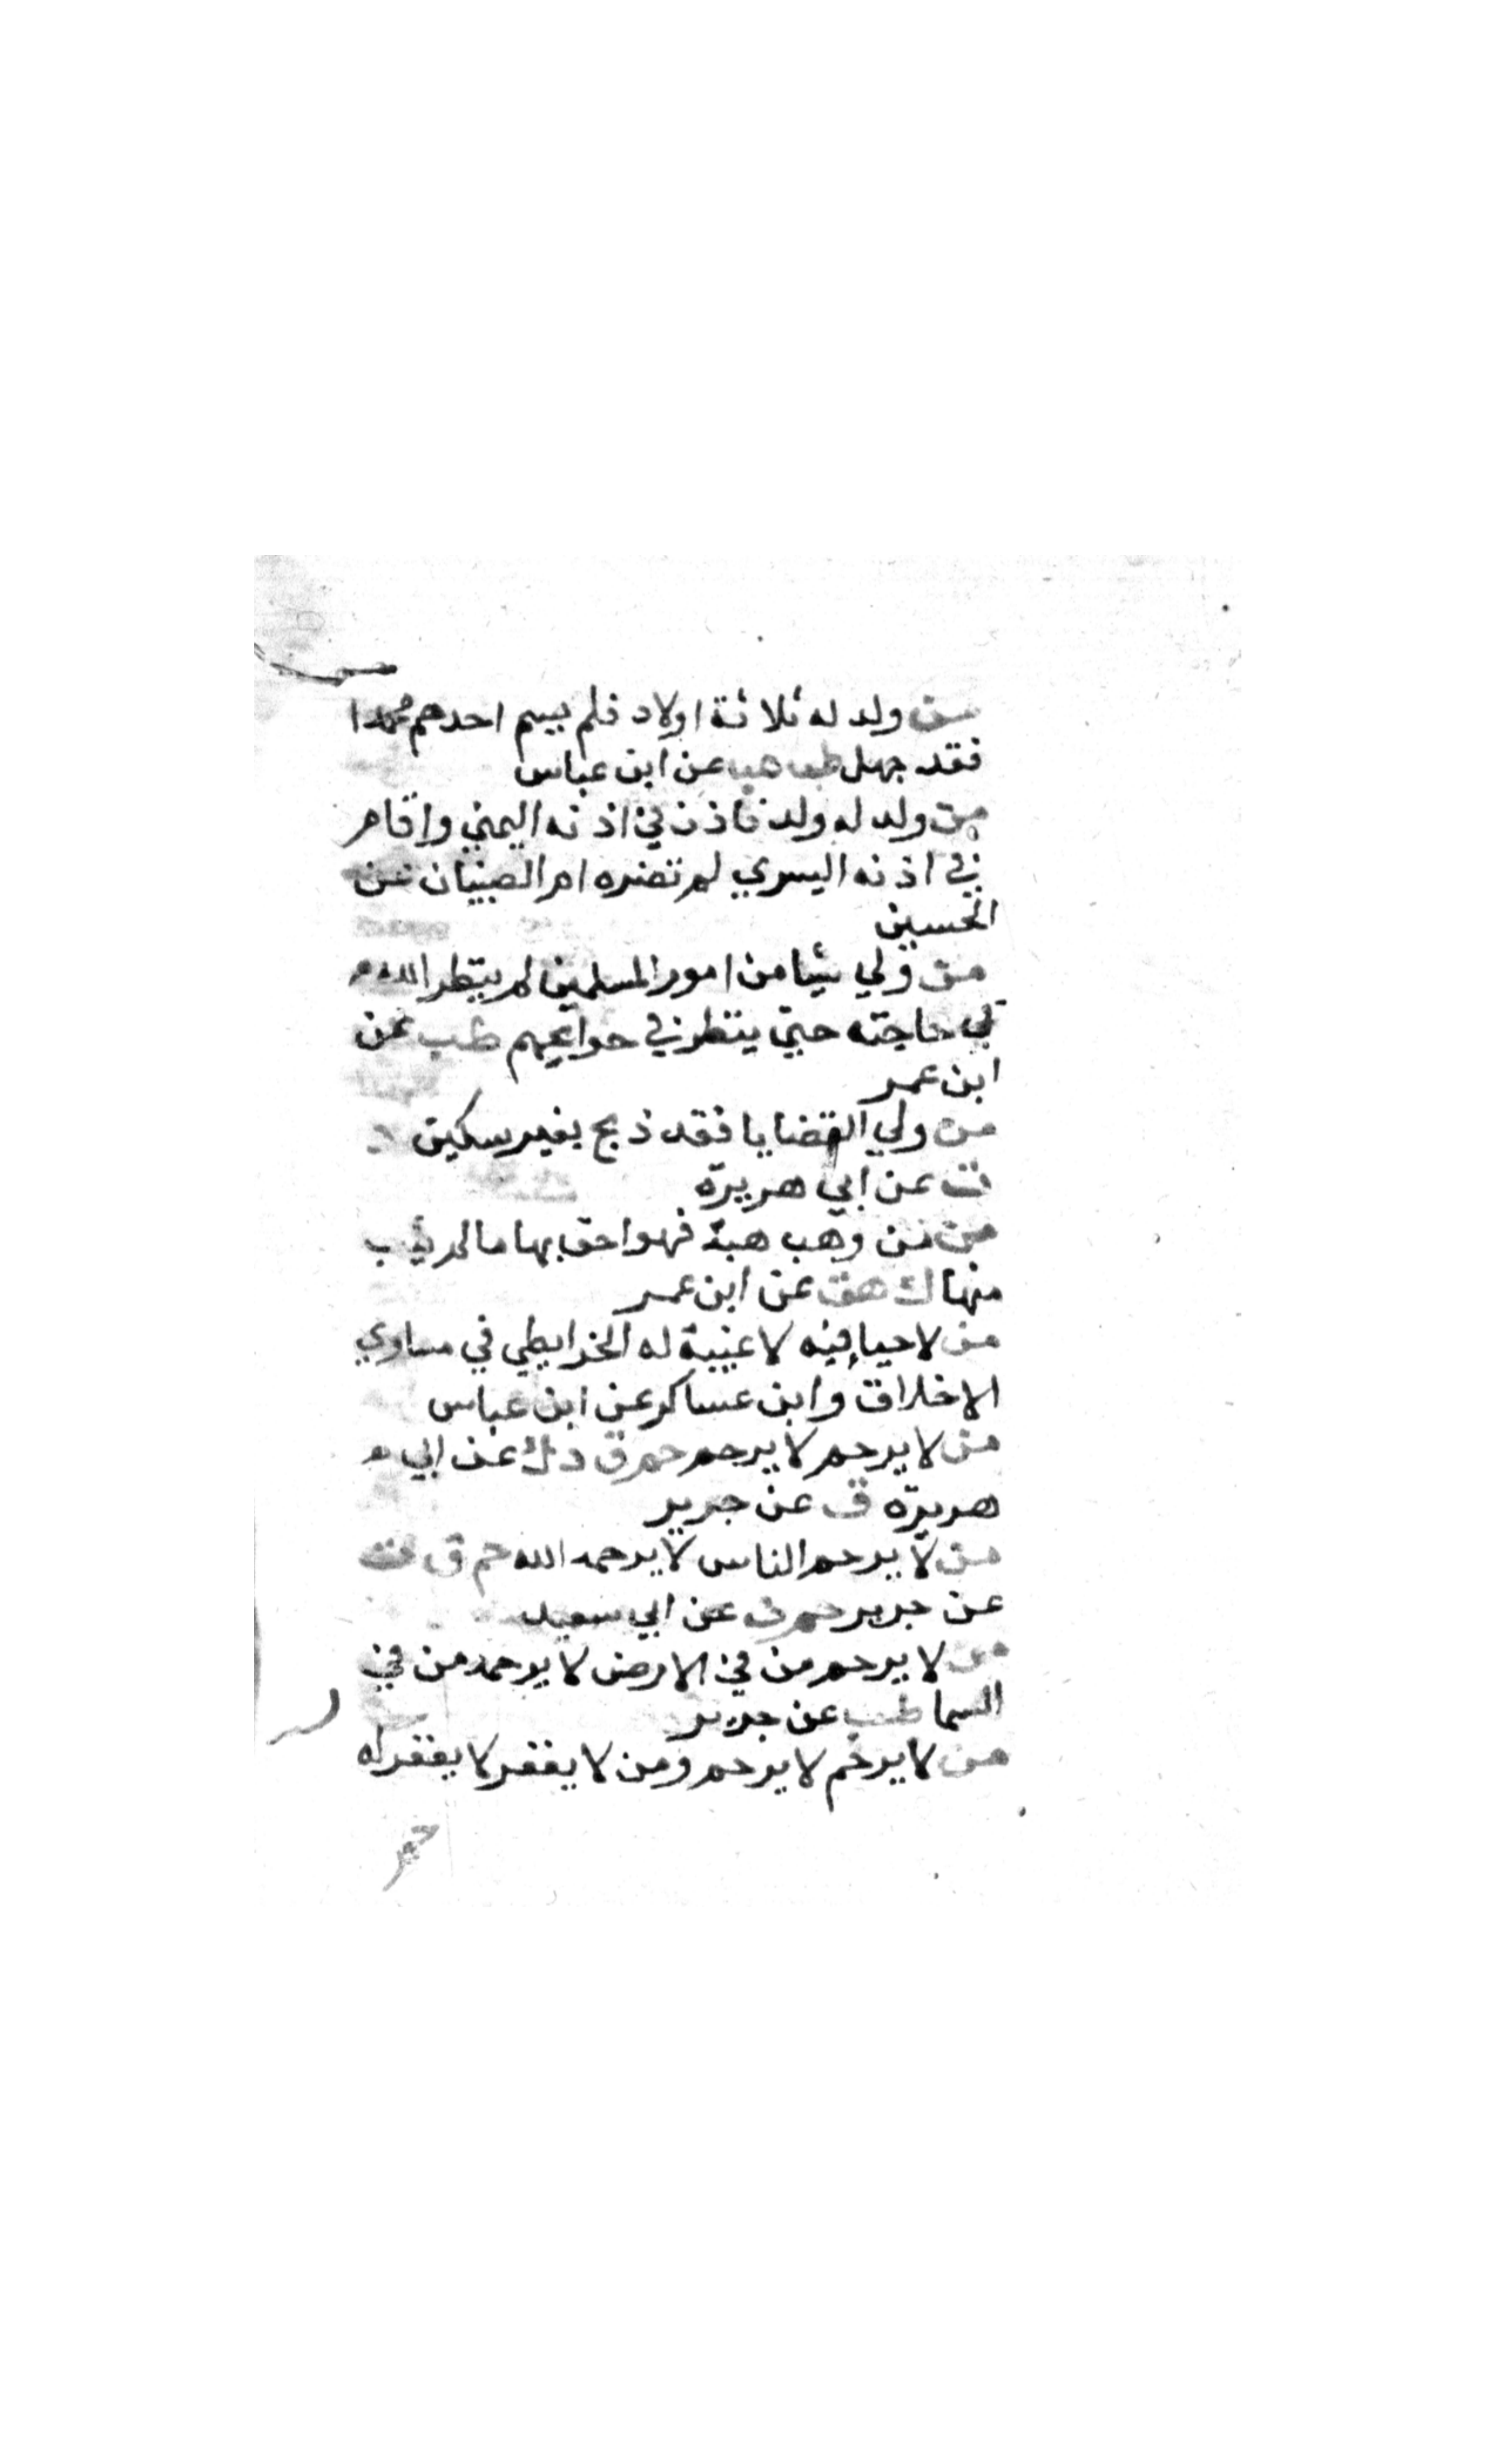 من ولد له ثلاثة اولاد فلم يسم احدهم محمدا
فقد جهل طب هب عن ابن عباس
من ولد له ولد فاذن في اذنه اليمني واقام
في اذنه اليسري لم تضره ام الصبيان عن
الحسين
من ولي شيا من امور المسلمين لم ينظر الله
في حاجته حتي ينظر في حوايجهم طب عن
ابن عمر
من ولي القضايا فقد ذبح بغير سكين د
ت عن ابي هريرة
من من وهب هبة فهو احق بها ما لم يثب
منها ك هق عن ابن عمر
من لا حيا فيه لا غيبة له الخرايطي في مساوي
الاخلاق وابن عساكر عن ابن عباس
من لا يرحم لا يرحم حم ق د ك عن ابي
هريرة ق عن جرير
من لا يرحم الناس لا يرحمه الله حم ق ت
عن جرير حم ت عن ابي سعيد
من لا يرحم من في الارض لا يرحمه من في
السما طب عن جرير
من لا يرحم لا يرحم ومن لا يغفر لا يغفر له